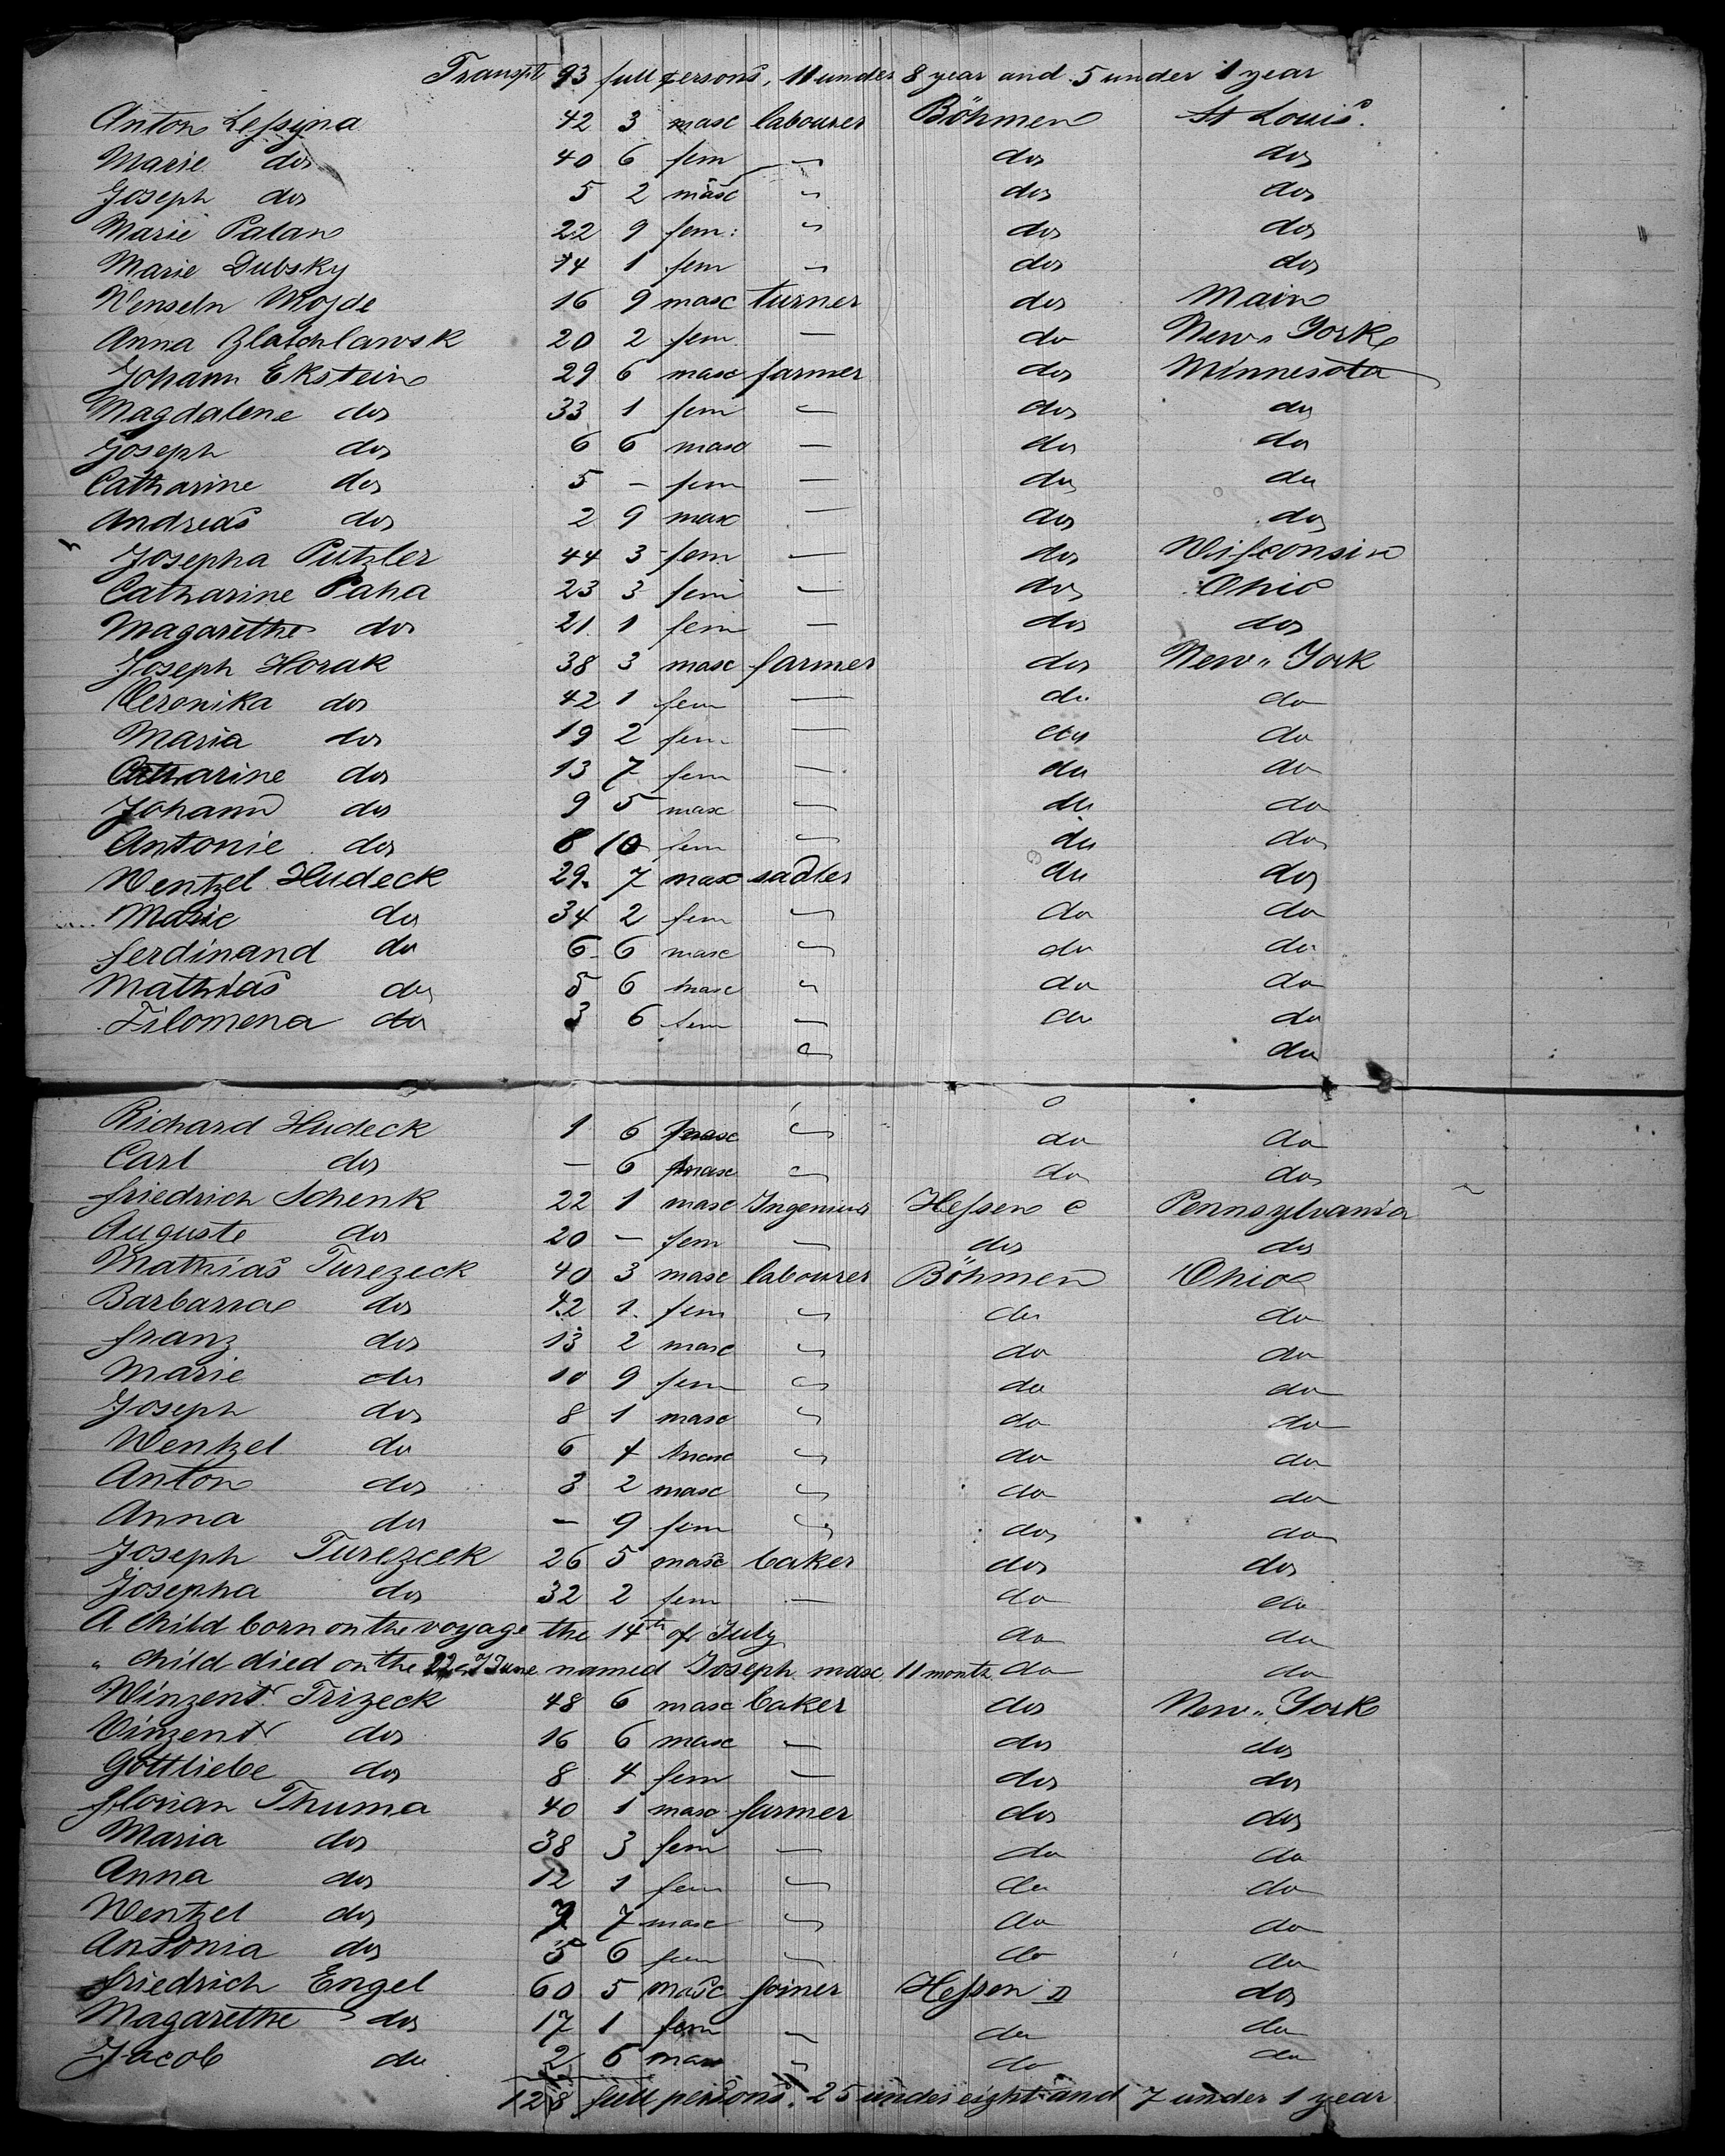 Transpt. 93 full persons, 11 under 8 year and 5 under 1 year
Anton Lessyna 42 3 masc labourer Böhmen St Louis.
Marie do 40 6 fem " do do
Joseph do 5 2 masc " do do
Marie Palan 22 9 fem: " do do
Marie Dubsky 14 1 fem " do do
Wenseln Mojde 16 9 masc turner do Main
Anna Zlatchlawsk 20 2 fem — do New York
Johann Ekstein 29 6 masc farmer do Minnesota
Magdalene do 33 1 fem — do do
Joseph do 6 6 masc — do do
Catharine do 5 – fem — do do
Andreas do 2 9 masc — do do
Josepha Putzler 44 3 fem — do Wisconsin
Catharine Paha 23 3 fem — do Ohio
Magarethe do 21 1 fem — do do
Joseph Horak 38 3 masc farmer do New York
Veronika do 42 1 fem — do do
Maria do 19 2 fem — do do
Catharine do 13 7 fem — do do
Johann do 9 5 masc — do do
Antonie do 8 10 fem " do do
Wentzel Hudeck 29 7 masc sadler do do
Marie do 34 2 fem " do do
Ferdinand do 6 6 masc " do do
Mathias do 5 6 masc " do do
Filomena do 3 6 fem " do do
" do
Richard Hudeck 1 6 masc " do do
Carl do — 6 masc " do do
Friedrich Schenk 22 1 masc Ingenieur Hessen C Pennsylvania
Auguste do 20 — fem — do do
Mathias Turezeck 40 3 masc labourer Böhmen Ohio
Barbara do 42 1 fem " do do
Franz do 13 2 masc " do do
Marie do 10 9 fem " do do
Joseph do 8 1 masc " do do
Wentzel do 6 4 masc " do do
Anton do 3 2 masc " do do
Anna do — 9 fem " do do
Joseph Turezeck 26 5 masc baker do do
Josepha do 32 2 fem — do do
A Child born on the voyage the 14th of July do do
" Child died on the 22 of June named Joseph masc 11 month do do
Winzent Trizeck 48 6 masc baker do New York
Vinzent do 16 6 masc — do do
Gottliebe do 8 4 fem — do do
Florian Thuma 40 1 masc farmer do do
Maria do 38 3 fem — do do
Anna do 12 1 fem " do do
Wentzel do 7 7 masc " do do
Antonia do 5 6 fem " do do
Friedrich Engel 60 5 masc joiner Hessen D do
Magarethe do 17 1 fem " do do
Jacob do 2 6 masc " do do
128 full persons, 25 under eight and 7 under 1 year